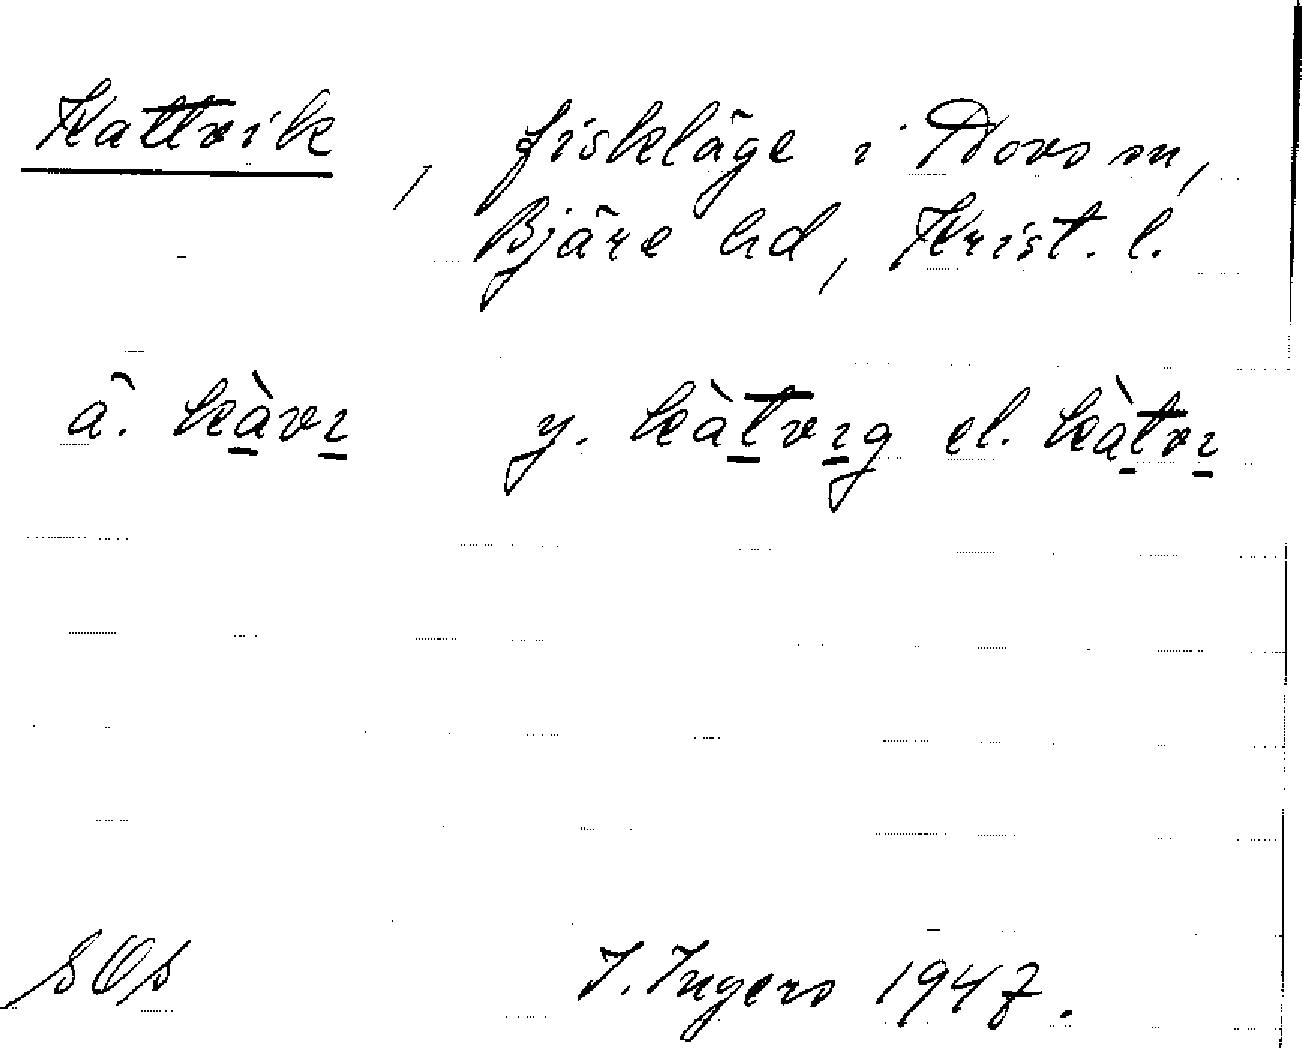 Kattvik, fiskläge i Hovs sn,
Bjäre hd, Krist. l.
ä. kàvı y. kàtvıg el. kàtvı
SOs I. Ingers 1947.